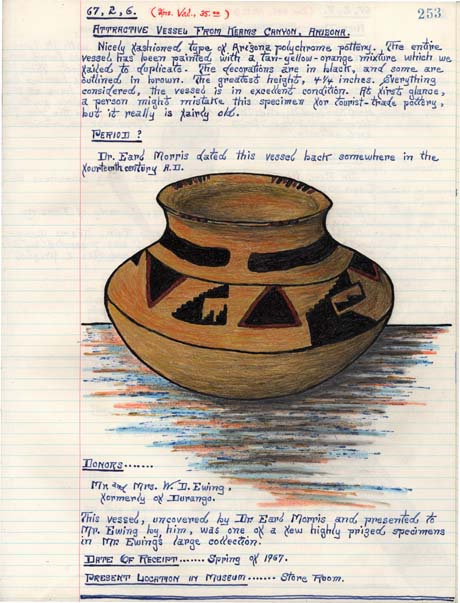 67, 2, 6. (Ins. Val., 35.00) 253
Attractive Vessel From Keams Canyon, Arizona.
Nicely fashioned type of Arizona polychrome pottery. The entire
vessel has been painted with a tan-yellow-orange mixture which we
failed to duplicate. The decorations are in black, and some are
outlined in brown. The greatest height, 4¼ inches. Everything
considered, the vessel is in excellent condition. At first glance,
a person might mistake this specimen for tourist-trade pottery,
but it really is fairly old.
Period?
Dr. Earl Morris dated this vessel back somewhere in the
fourteenth century A.D.
Donors.......
Mr. and Mrs. W. D. Ewing,
formerly of Durango.
This vessel, uncovered by Dr. Earl Morris and presented to
Mr. Ewing by him, was one of a few highly prized specimens
in Mr. Ewing's large collection.
Date Of Receipt....... Spring of 1967.
Present Location in Museum....... Store Room.